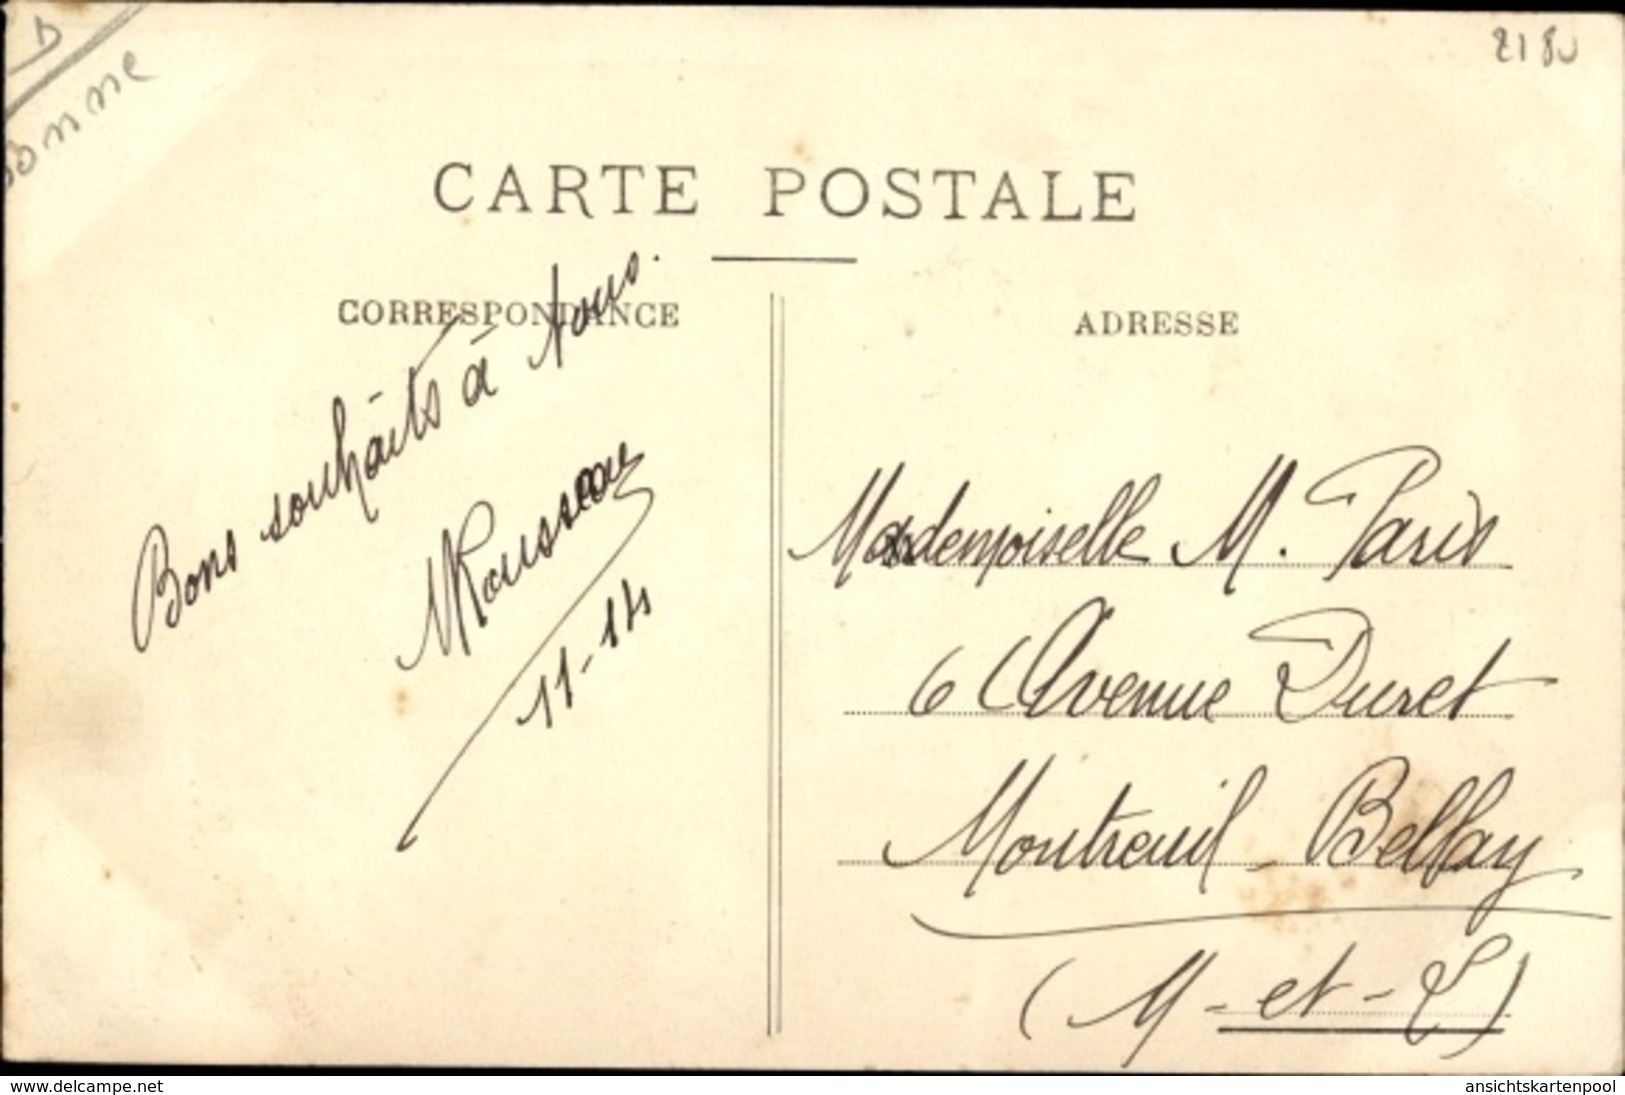 2180
CARTE POSTALE
CORRESPONDANCE
Bons souhaits à tous.
Rousseau
11-14
ADRESSE
Mademoiselle M. Paris
6 Avenue Duret
Montreuil-Bellay
(M-et-L)
www.delcampe.net
ansichtskartenpool